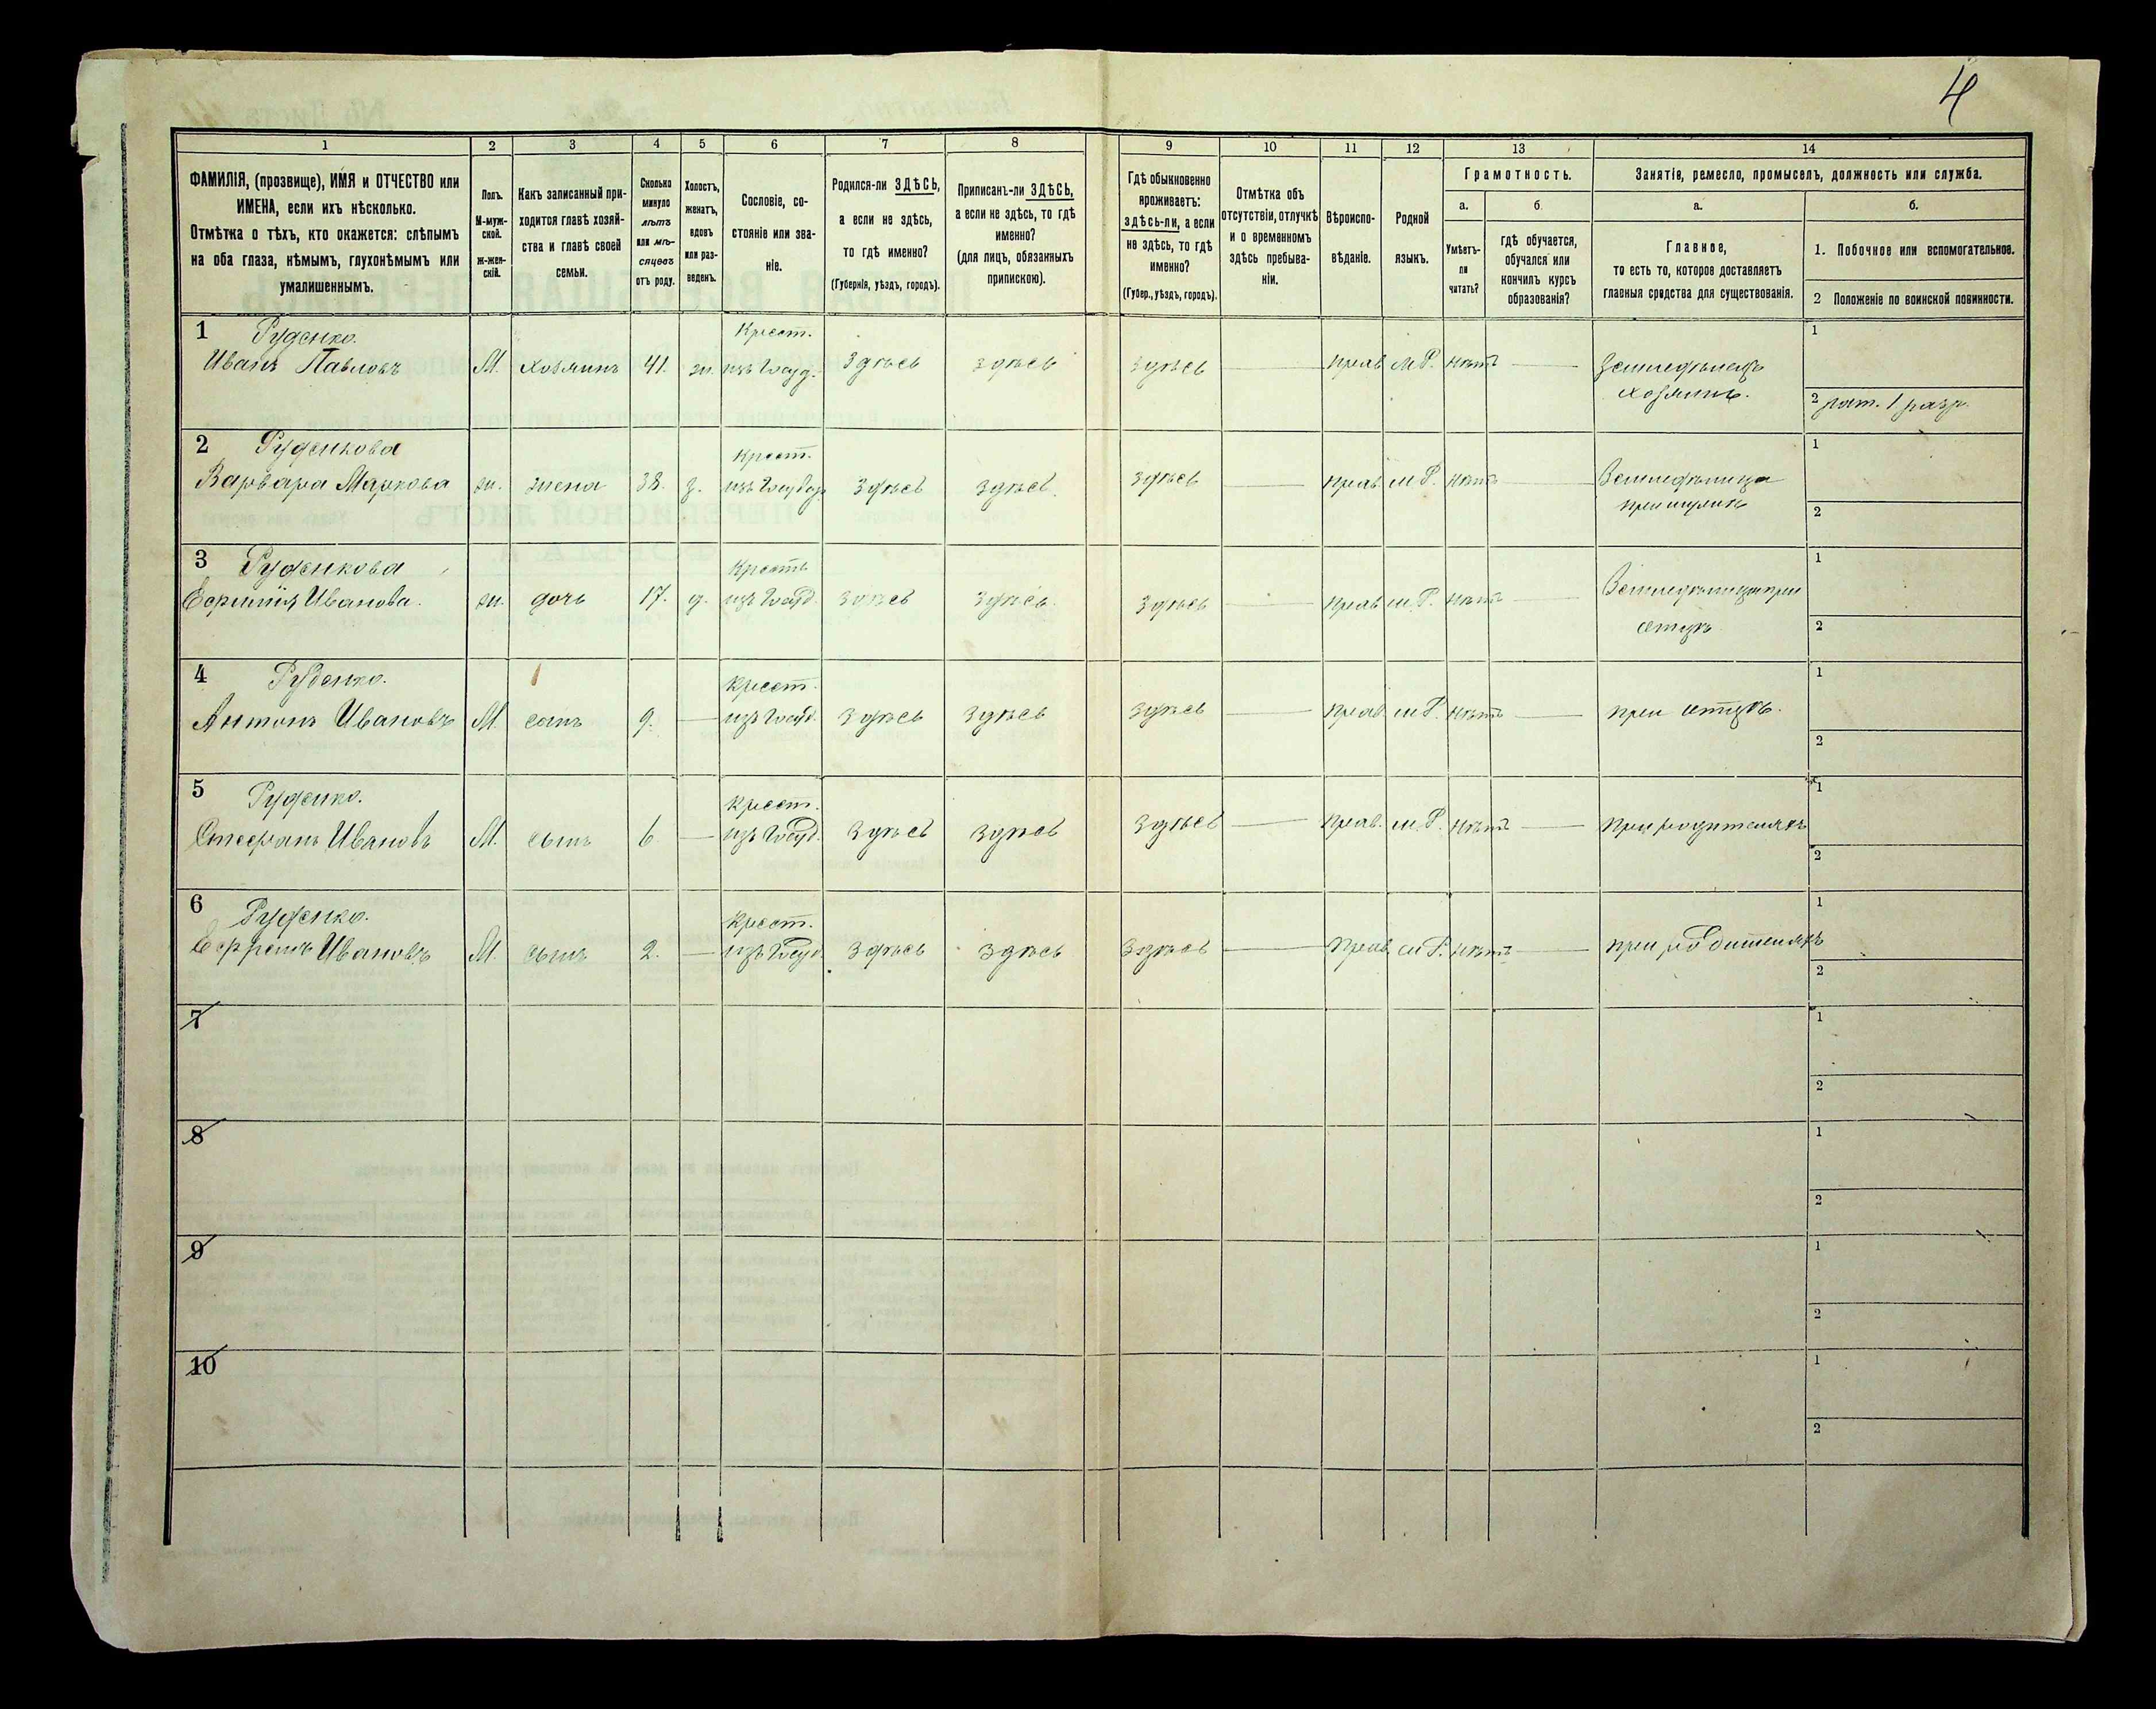 4
1
2
3
4
5
6
7
8
9
10
11
12
13
14
ФАМИЛІЯ, (прозвище), ИМЯ и ОТЧЕСТВО или
ИМЕНА, если ихъ нѣсколько.
Отмѣтка о тѣхъ, кто окажется: слѣпымъ
на оба глаза, нѣмымъ, глухонѣмымъ или
умалишеннымъ.
Полъ.
М-муж-
ской.
ж-жен-
скій.
Какъ записанный при-
ходится главѣ хозяй-
ства и главѣ своей
семьи.
Сколько
минуло
лѣтъ
или мѣ-
сяцевъ
отъ роду.
Холостъ,
женатъ,
вдовъ
или раз-
веденъ.
Сословіе, со-
стояніе или зва-
ніе.
Родился-ли ЗДѢСЬ,
а если не здѣсь,
то гдѣ именно?
(Губернія, уѣздъ, городъ).
Приписанъ-ли ЗДѢСЬ,
а если не здѣсь, то гдѣ
именно?
(для лицъ, обязанныхъ
припискою).
Гдѣ обыкновенно
проживаетъ:
здѣсь-ли, а если
не здѣсь, то гдѣ
именно?
(Губер., уѣздъ, городъ).
Отмѣтка объ
отсутствіи, отлучкѣ
и о временномъ
здѣсь пребыва-
ніи.
Вѣроиспо-
вѣданіе.
Родной
языкъ.
Грамотность.
а.
Умѣетъ-
ли
читать?
б.
гдѣ обучается,
обучался или
кончилъ курсъ
образованія?
Занятіе, ремесло, промыселъ, должность или служба.
а.
Главное,
то есть то, которое доставляетъ
главныя средства для существованія.
б.
1. Побочное или вспомогательное.
2 Положеніе по воинской повинности.
1 Руденко.
Иванъ Павловъ М. хозяинъ 41. ж. Крест.
изъ Госуд. Здѣсь здѣсь здѣсь — прав. М.Р. нѣтъ — Земледѣлецъ
хозяинъ.
1
2 рат. 1 разр.
2 Руденкова
Варвара Маркова ж. жена 38. з. Крест.
изъ Госуд. здѣсь здѣсь. здѣсь — прав. М.Р. нѣтъ — Земледѣлица
при мужѣ
1
2
3 Руденкова
Ефимія Иванова. ж. дочь 17. д. Крест.
изъ Госуд. здѣсь здѣсь. здѣсь — прав. М.Р. нѣтъ — Земледѣлица при
отцѣ
1
2
4 Руденко.
Антонъ Ивановъ М. сынъ 9. — Крест.
изъ Госуд. здѣсь здѣсь здѣсь — прав. М.Р. нѣтъ — при отцѣ.
1
2
5 Руденко.
Стефанъ Ивановъ М. сынъ 6 — Крест.
изъ Госуд. здѣсь здѣсь здѣсь — прав. М.Р. нѣтъ — при родителяхъ
1
2
6 Руденко.
Ефремъ Ивановъ М. сынъ 2. — Крест.
изъ Госуд. здѣсь здѣсь здѣсь — Прав. М.Р. нѣтъ — при родителяхъ
1
2
7
1
2
8
1
2
9
1
2
10
1
2